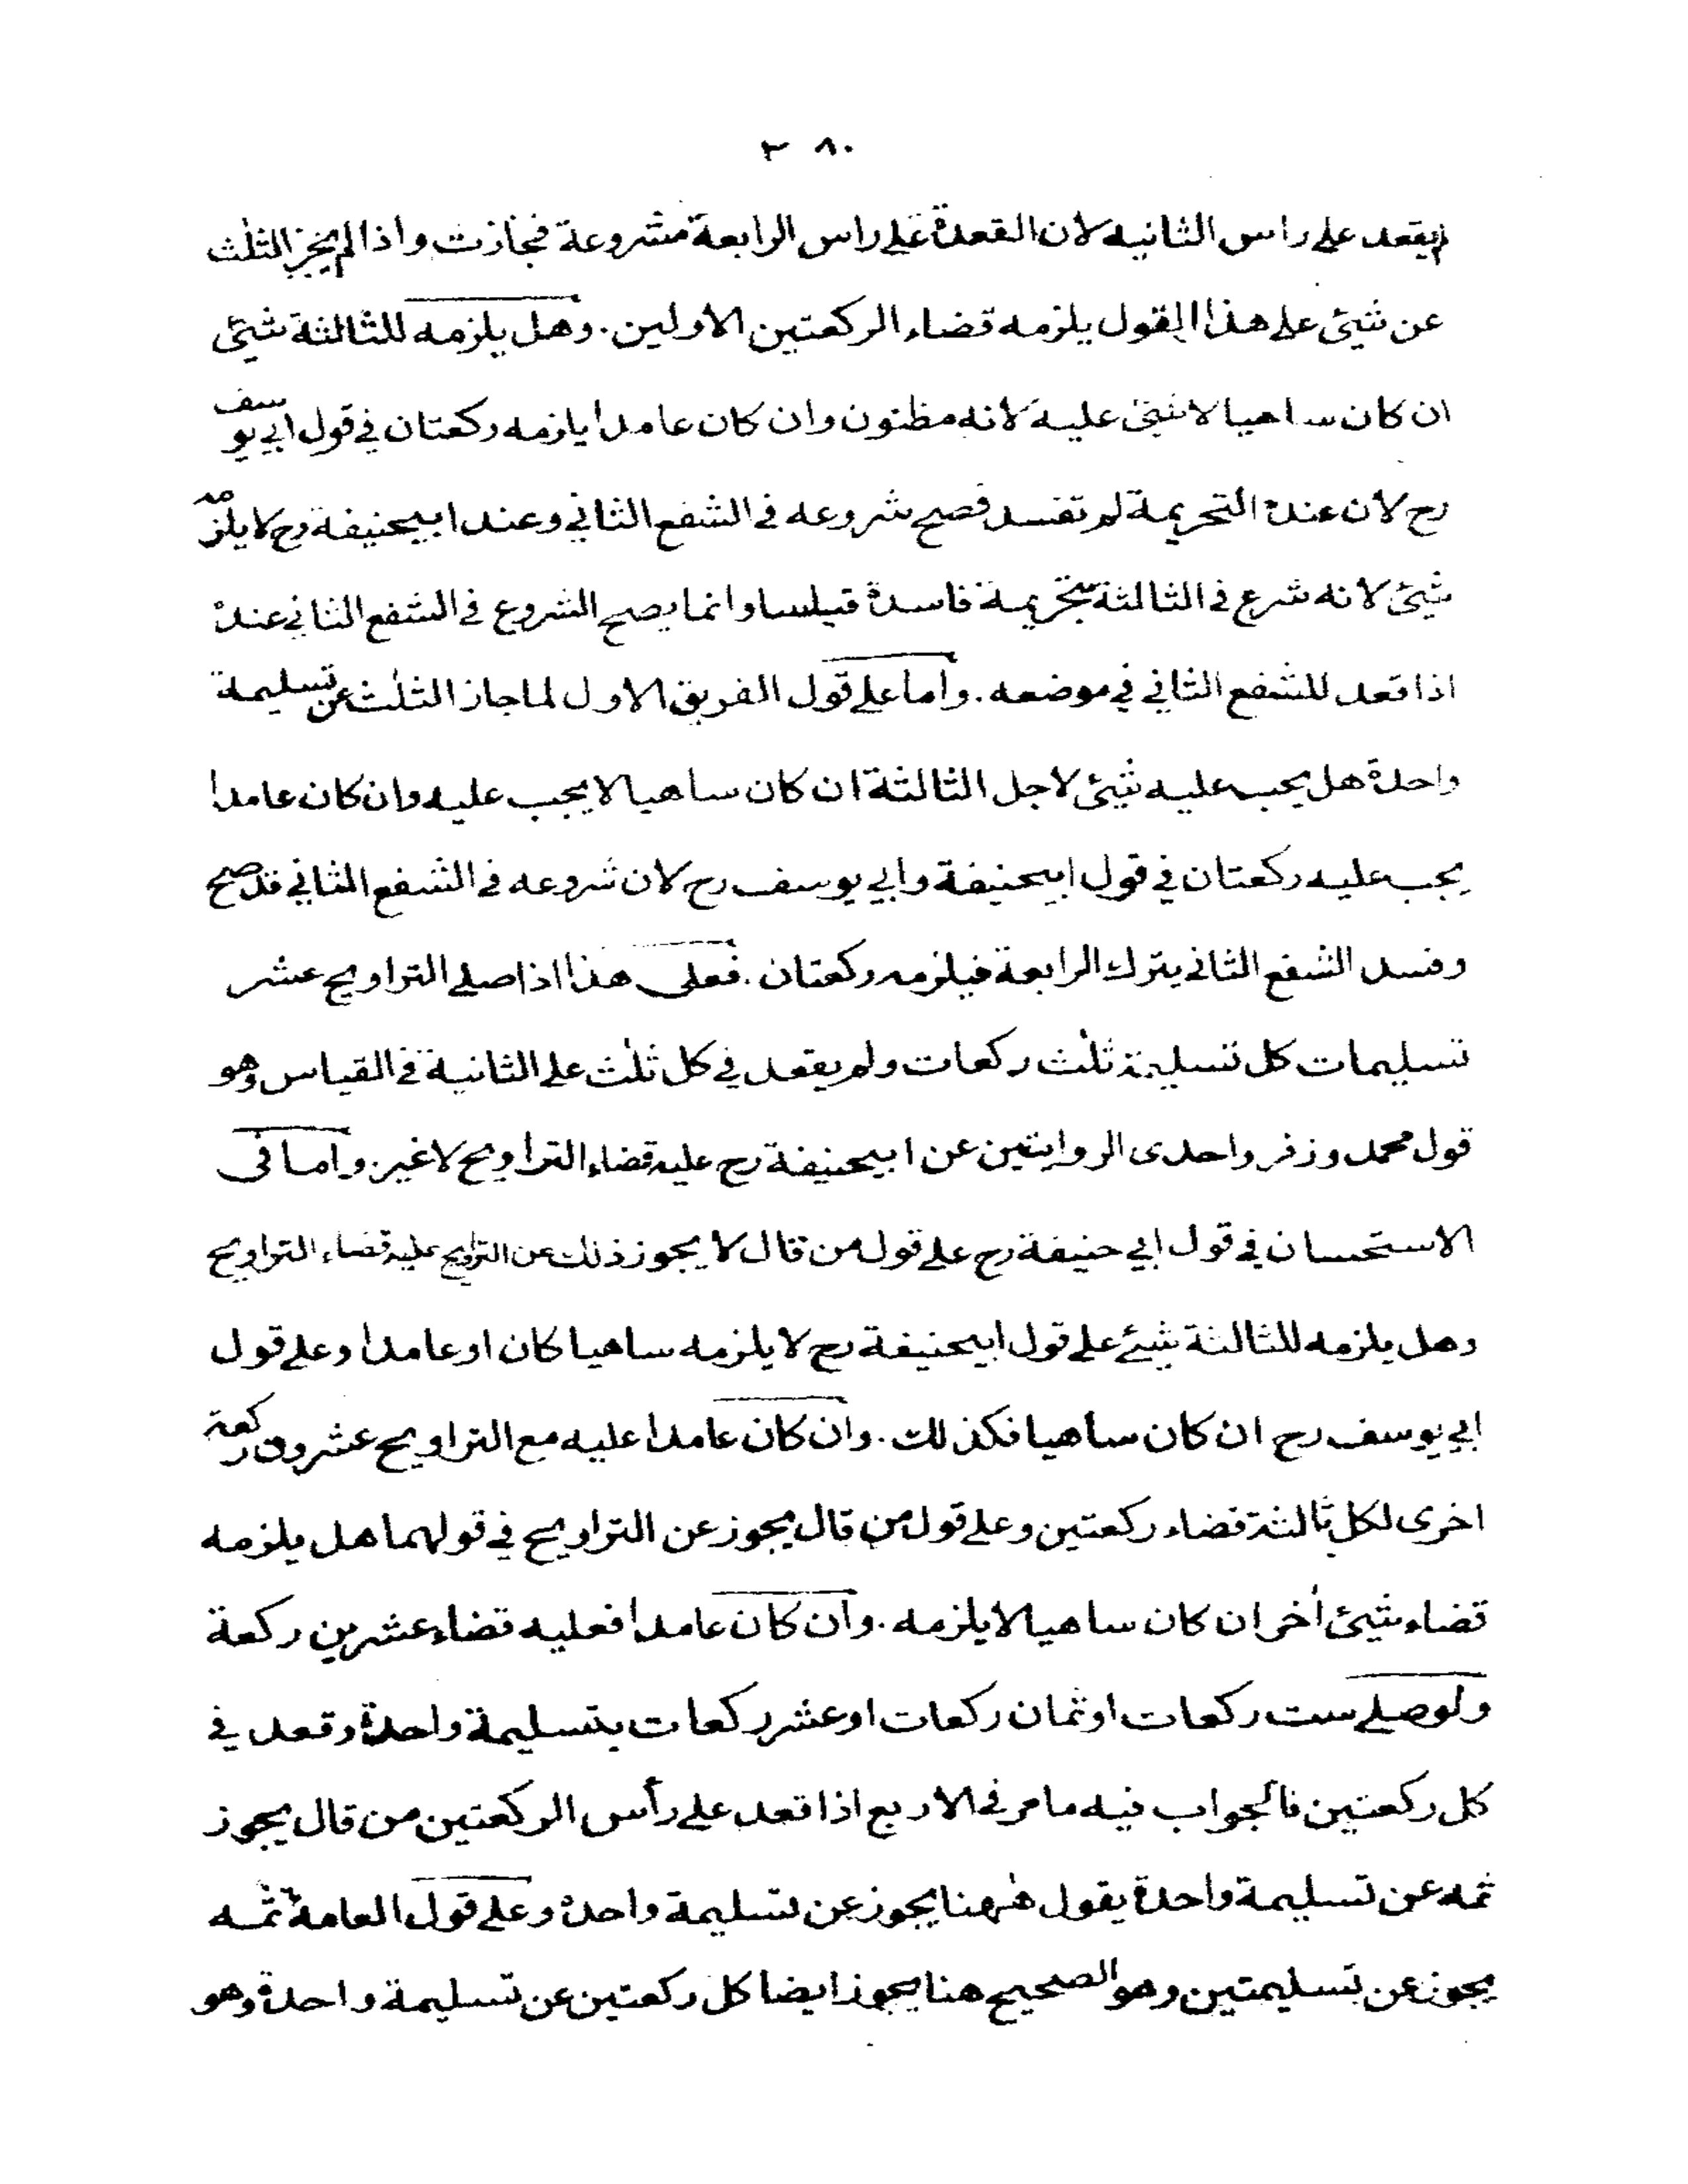 ٢٨٠
لم يقعد على راس الثانيه لان القعدة على راس الرابعة مشروعة فجازت واذا لم يجز الثلث
عن شيئ على هذا القول يلزمه قضاء الركعتين الاولين. وهل يلزمه للثالثة شيئ
ان كان ساهيا لا شيئ عليه لانه مظنون وان كان عامدا يلزمه ركعتان في قول ابي يوسف
رح لان عنده التحريمة لم تفسد فصح شروعه في الشفع الثاني وعند ابيحنيفة رح لا يلزمه
شيئ لانه شرع في الثالثة بتحريمة فاسدة قياسا وانما يصح الشروع في الشفع الثاني عنده
اذا قعد للشفع الثاني في موضعه. واما على قول الفريق الاول لما جاز الثلث عن تسليمة
واحدة هل يجب عليه شيئ لاجل الثالثة ان كان ساهيا لا يجب عليه وان كان عامدا
يجب عليه ركعتان في قول ابيحنيفة وابي يوسف رح لان شروعه في الشفع الثاني قد صح
وفسد الشفع الثاني بترك الرابعة فيلزمه ركعتان. فعلى هذا اذا صلى التراويح عشر
تسليمات كل تسليمة ثلث ركعات ولم يقعد في كل ثلث على الثانية في القياس وهو
قول محمد وزفر واحدى الروايتين عن ابيحنيفة رح عليه قضاء التراويح لا غير. واما في
الاستحسان في قول ابي حنيفة رح على قول من قال لا يجوز ذلك عن التراويح عليه قضاء التراويح
وهل يلزمه للثالثة شيئ على قول ابيحنيفة رح لا يلزمه ساهيا كان او عامدا وعلى قول
ابي يوسف رح ان كان ساهيا فكذلك. وان كان عامدا عليه مع التراويح عشرون ركعة
اخرى لكل ثالثة قضاء ركعتين وعلى قول من قال يجوز عن التراويح في قولهما هل يلزمه
قضاء شيئ أخر ان كان ساهيا لا يلزمه. وان كان عامدا فعليه قضاء عشرين ركعة
ولو صلى ست ركعات او ثمان ركعات او عشر ركعات بتسليمة واحدة وقعد في
كل ركعتين فالجواب فيه ما مر في الاربع اذا قعد على رأس الركعتين من قال يجوز
ثمه عن تسليمة واحدة يقول ههنا يجوز عن تسليمة واحدة وعلى قول العامة ثمه
يجوز عن تسليمتين وهو الصحيح هنا يجوز ايضا كل ركعتين عن تسليمة واحدة وهو